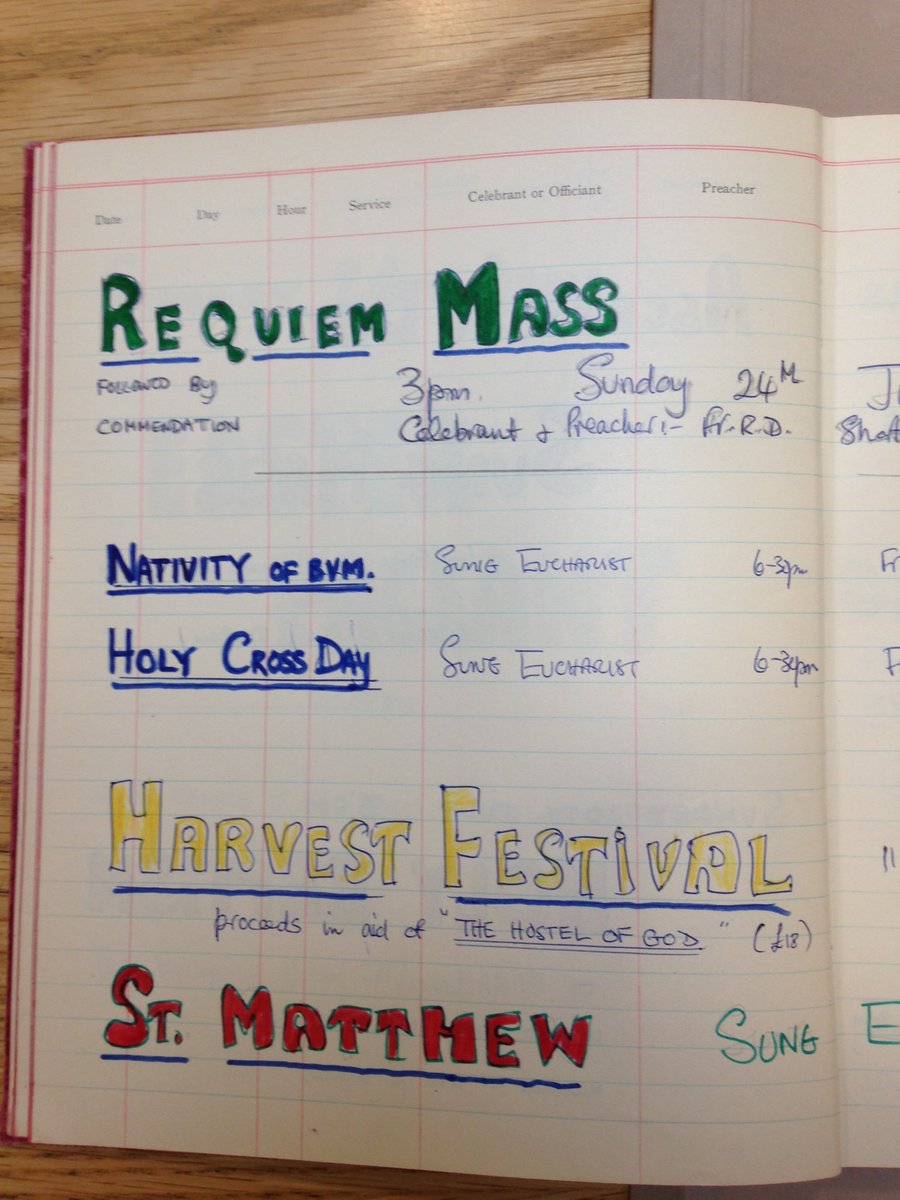 Date Day Hour Service Celebrant or Officiant Preacher
REQUIEM MASS
FOLLOWED By 3pm. Sunday 24th
COMMENDATION Celebrant & Preacher:- Fr. R.D.
NATIVITY OF BVM. SUNG EUCHARIST 6-30pm
HOLY CROSS DAY SUNG EUCHARIST 6-30pm
HARVEST FESTIVAL
proceeds in aid of "THE HOSTEL OF GOD." (£18)
ST. MATTHEW SUNG E